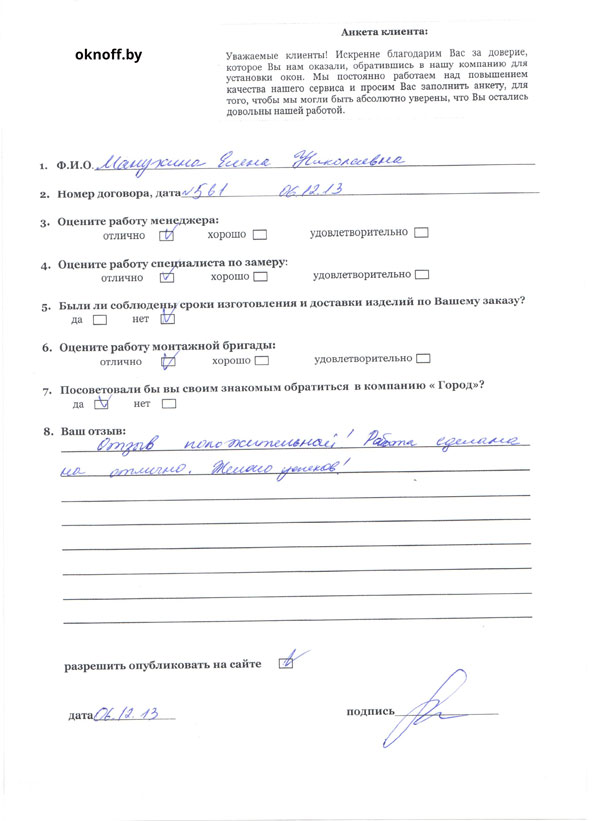 oknoff.by
Анкета клиента:
Уважаемые клиенты! Искренне благодарим Вас за доверие,
которое Вы нам оказали, обратившись в нашу компанию для
установки окон. Мы постоянно работаем над повышением
качества нашего сервиса и просим Вас заполнить анкету, для
того, чтобы мы могли быть абсолютно уверены, что Вы остались
довольны нашей работой.
1. Ф.И.О. Манухина Елена Николаевна
2. Номер договора, дата №561 06.12.13
3. Оцените работу менеджера:
отлично хорошо удовлетворительно
4. Оцените работу специалиста по замеру:
отлично хорошо удовлетворительно
5. Были ли соблюдены сроки изготовления и доставки изделий по Вашему заказу?
да нет
6. Оцените работу монтажной бригады:
отлично хорошо удовлетворительно
7. Посоветовали бы вы своим знакомым обратиться в компанию « Город»?
да нет
8. Ваш отзыв:
Отзыв положительный! Работа сделана
на отлично. Желаю успехов!
разрешить опубликовать на сайте
дата 06.12.13 подпись